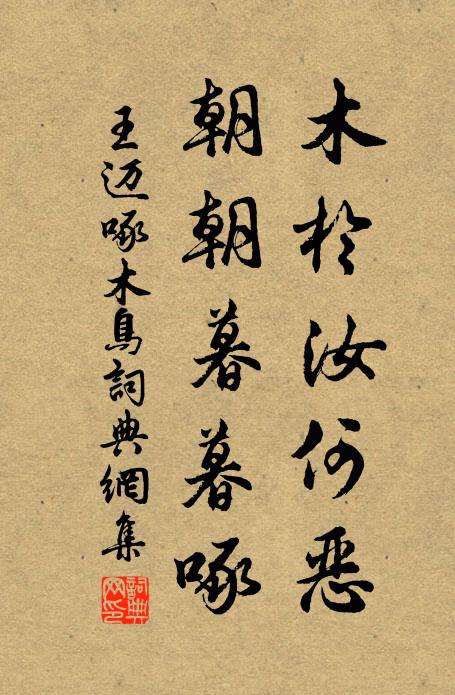 木於汝何惡
朝朝暮暮啄
王迈啄木鳥詞典網集
詞典网印